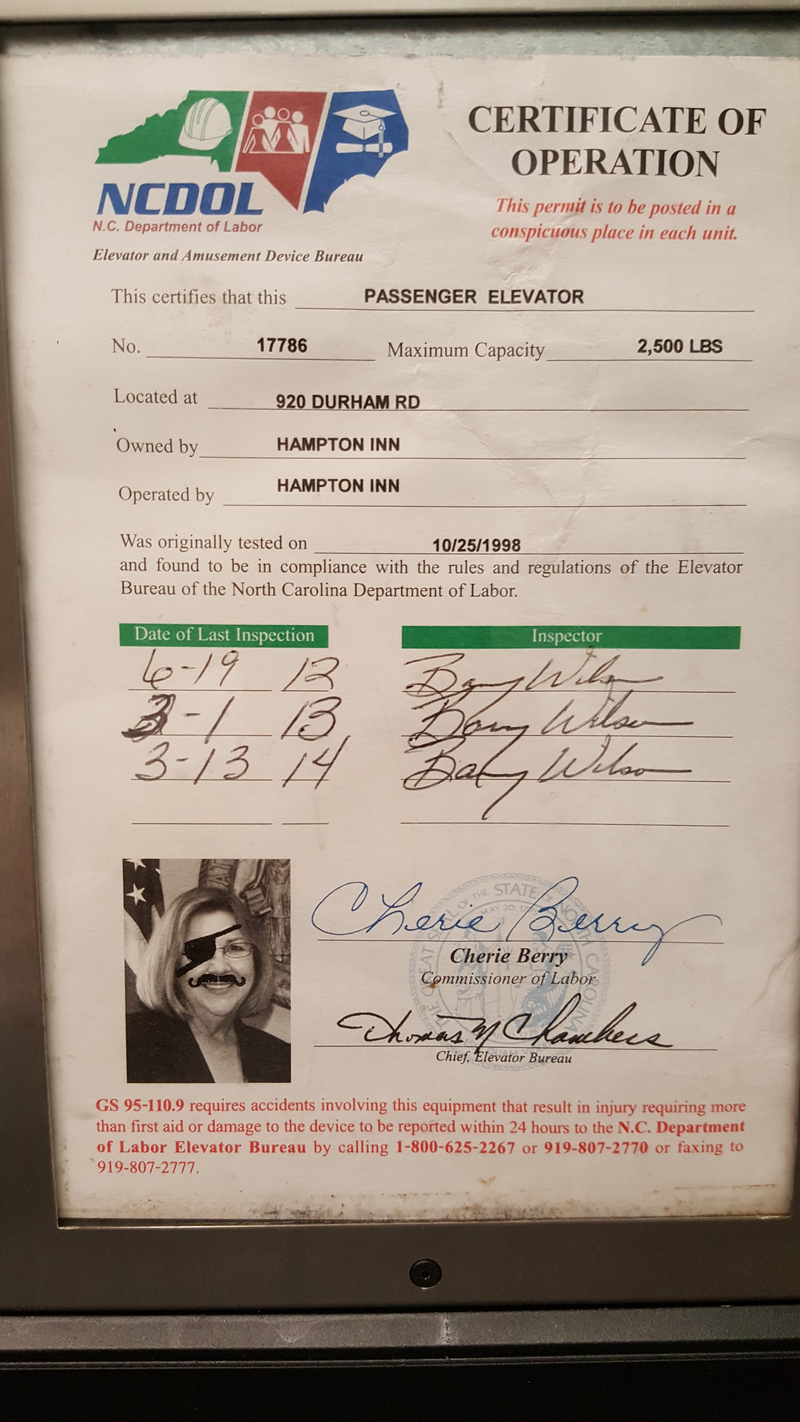 NCDOL
N.C. Department of Labor
Elevator and Amusement Device Bureau
CERTIFICATE OF
OPERATION
This permit is to be posted in a
conspicuous place in each unit.
This certifies that this PASSENGER ELEVATOR
No. 17786 Maximum Capacity 2,500 LBS
Located at 920 DURHAM RD
Owned by HAMPTON INN
Operated by HAMPTON INN
Was originally tested on 10/25/1998
and found to be in compliance with the rules and regulations of the Elevator
Bureau of the North Carolina Department of Labor.
Date of Last Inspection Inspector
6-19 12 Barry Wilson
3-1 13 Barry Wilson
3-13 14 Barry Wilson
Cherie Berry
Cherie Berry
Commissioner of Labor
Thomas N Chambers
Chief, Elevator Bureau
GS 95-110.9 requires accidents involving this equipment that result in injury requiring more
than first aid or damage to the device to be reported within 24 hours to the N.C. Department
of Labor Elevator Bureau by calling 1-800-625-2267 or 919-807-2770 or faxing to
919-807-2777.